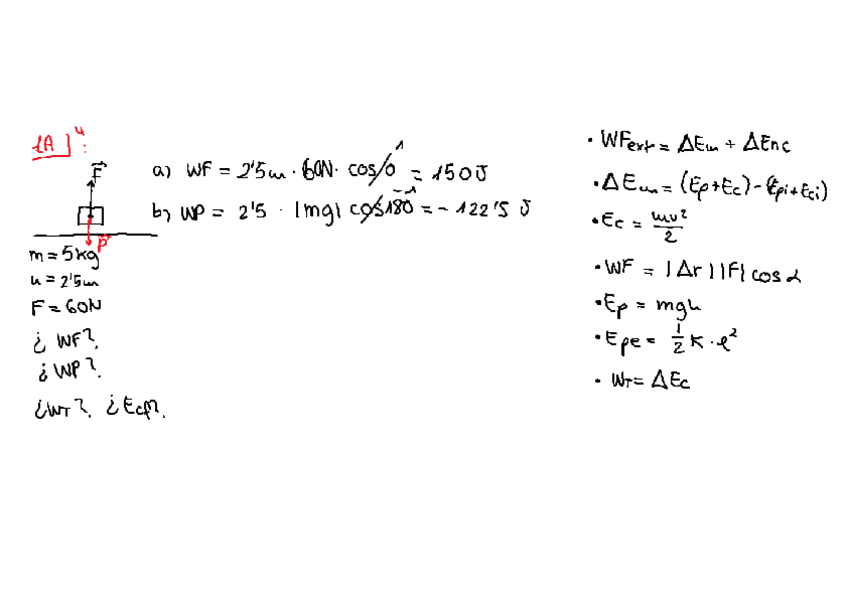 1A] 4:
F
P
m = 5kg
h = 2'5m
F = 60N
¿ WF?
¿ WP?
¿WT? ¿Ecf?
a) WF = 2'5m · 60N · cos 0 1 = 150J
b) WP = 2'5 · |mg| cos 180 -1 = - 122'5 J
· WFext = ΔEm + ΔEnc
· ΔEm = (Ep+Ec) - (Epi+Eci)
· Ec = mv²/2
· WF = |Δr||F| cos α
· Ep = mgh
· Epe = 1/2 K · e²
· WT = ΔEc